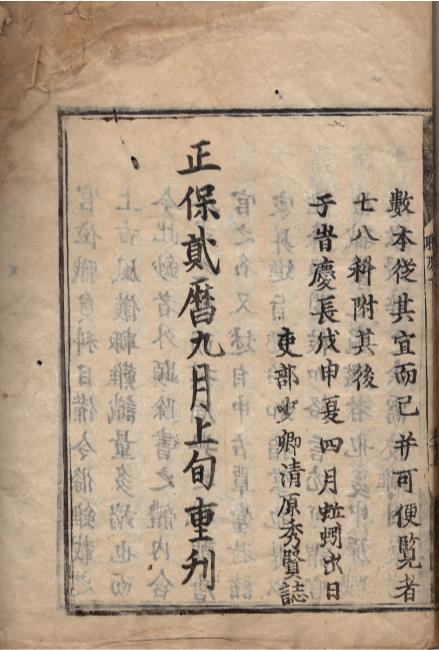 數本從其宜而已并可便覽者
七八科附其後
于旹慶長戊申夏四月蚯蚓出日
吏部少卿清原秀賢誌
正保貳曆九月上旬重刋